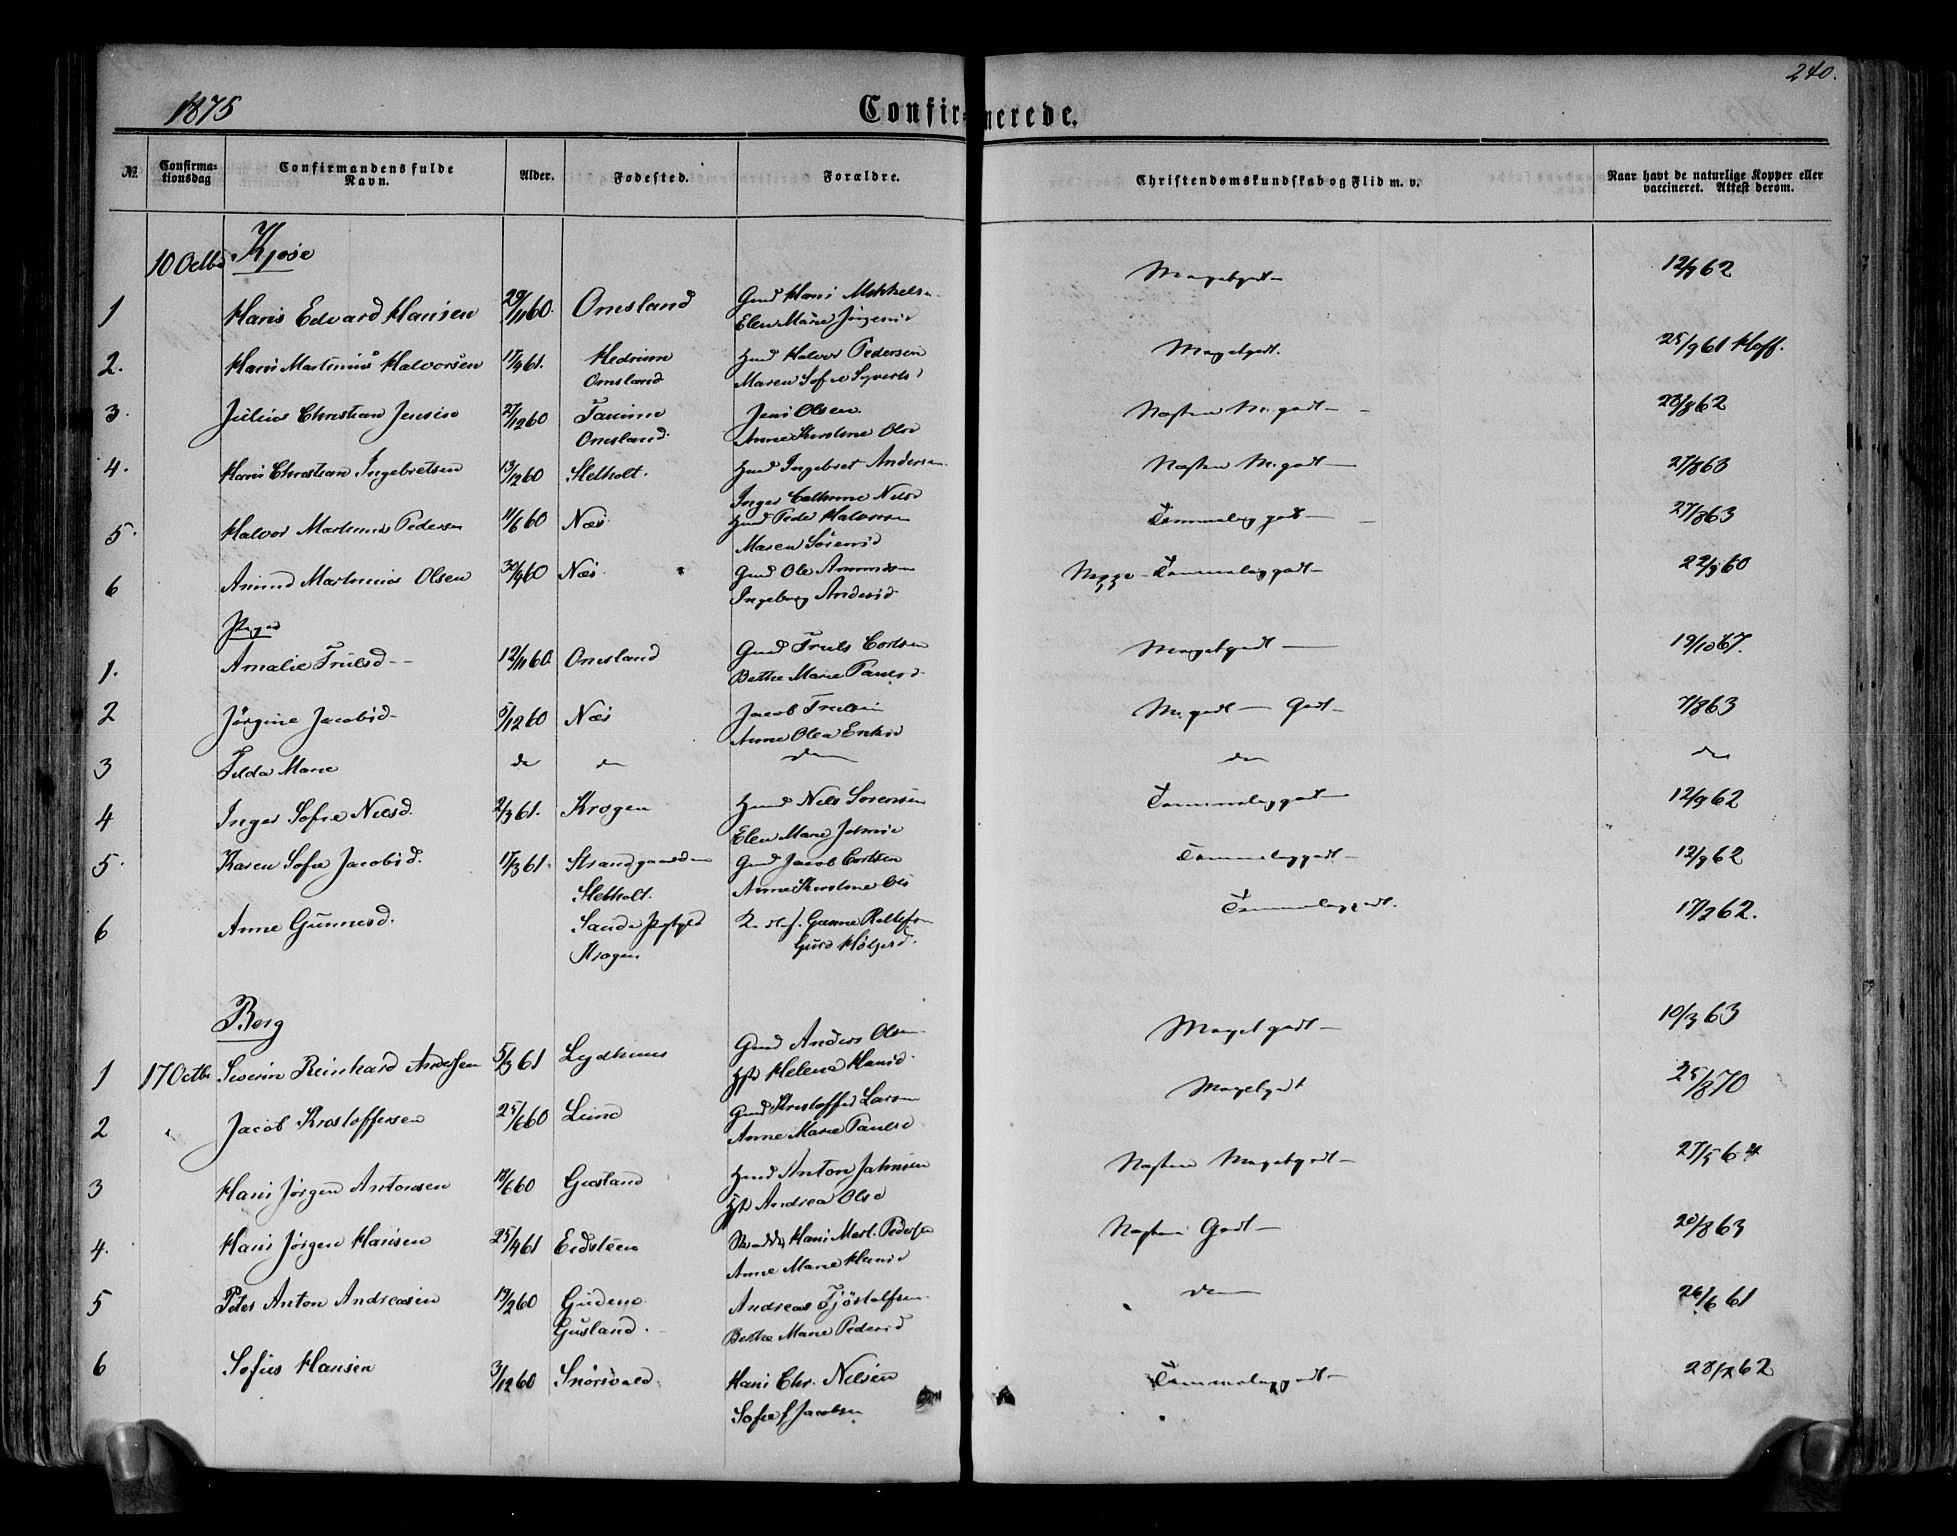 240.
1875 Confirmerede.
№ Confirmationsdag Confirmandens fulde Navn. Alder. Fødested. Forældre. Christendomskundskab og Flid m. v. Naar havt de naturlige Kopper eller vaccineret. Attest derom.
10 Octbr Kjose
1 Hans Edvard Hansen 29/11 60. Omsland Gmd Hans Mikkelsen Elen Marie Jørgensd Megetgodt 12/9 62
2. Hans Martinius Halvorsen 17/4 61. Hedrum Omsland Hmd Halvor Pedersen Maren Sofie Syvertsd Megetgodt. 25/9 61 Hoff.
3. Julius Christian Jensen 27/12 60 Tanum Omsland. Jens Olsen. Anne Kirstine Olsd Næsten M. godt 28/8 62
4. Hans Christian Ingebretsen 13/12 60 Sletholt. Hmd Ingebret Andersen Inger Cathrine Nilsd Næsten M. godt 27/8 63
5. Halvor Martinius Pedersen 11/6 60 Næs Hmd Peder Halvorsen Maren Sørensd Temmeliggodt 27/8 63
6 Amund Martinius Olsen 30/9 60 Næs Gmd Ole Amundsen Ingeborg Andersd Neppe Temmeliggodt 22/9 60
Piger
1. Amalie Trulsd 12/11 60 Omsland Gmd Truls Corlsen Bethe Marie Paulsd. Megetgodt 19/10 67.
2 Jørgine Jacobsd 5/12 60 Næs Jacob Trulsen Anne Olea Eriksd M. godt Godt 7/8 63
3 Tilda Marie do do do do do
4 Inger Sofie Nilsd. 2/3 61. Krogen Hmd Nils Sørensen Elen Marie Johnsd Temmeliggodt 12/9 62
5. Karen Sofie Jacobsd. 17/3 61. Strandgaarden Sletholt. Gmd Jacob Corlsen Anne Kirstine Ols Temmeliggodt 12/9 62
6 Anne Gunnesd. Krogen Gunne Gurd Holgersd. Temmeliggodt. 17/2 62.
Berg
1 17 Octbr Severin Reinhard Andersen 5/3 61 Lydhuus Gmd Anders Olsen Hst Helena Hansd. Meget godt 10/3 63
2 Jacob Kristoffersen 25/6 60 Lund Gmd Kristoffer Larsen Anne Marie Paulsd Megetgodt 25/8 70
3 Hans Jørgen Antonsen 18/6 60 Gusland Hmd Anton Johnsen Hst Andrea Olsd Næsten Megetgodt 27/5 64
4. Hans Jørgen Hansen 25/4 61 Eidsteen Hans Mart. Pedersen Anne Marie Hansd Næsten Godt 20/8 63
5 Peter Anton Andreasen 19/2 60 Gudem Gusland. Andreas Tjøstolfsen Berthe Marie Pedersd do 26/6 61
6 Sofus Hansen 3/12 60 Snorsvald Hans Chr. Nilsen Sofie f Jacobsen Temmeliggodt 28/2 62